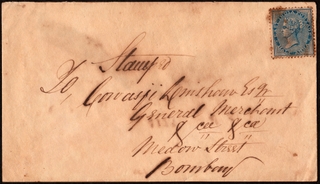 Stamp'd
To,
Cowasji Esqr
General Merchant
& ca & ca
Medow Street
Bombay